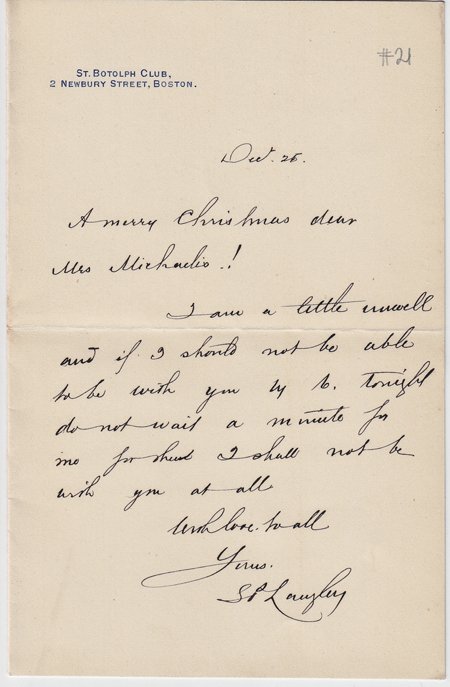 #21
ST. BOTOLPH CLUB,
2 NEWBURY STREET, BOSTON.
Dec. 25.
A merry Christmas dear
Mrs Michaelis!
I am a little unwell
and if I should not be able
to be with you by 6. tonight
do not wait a minute for
me for then I shall not be
with you at all
With love to all
Yours.
SP Langley